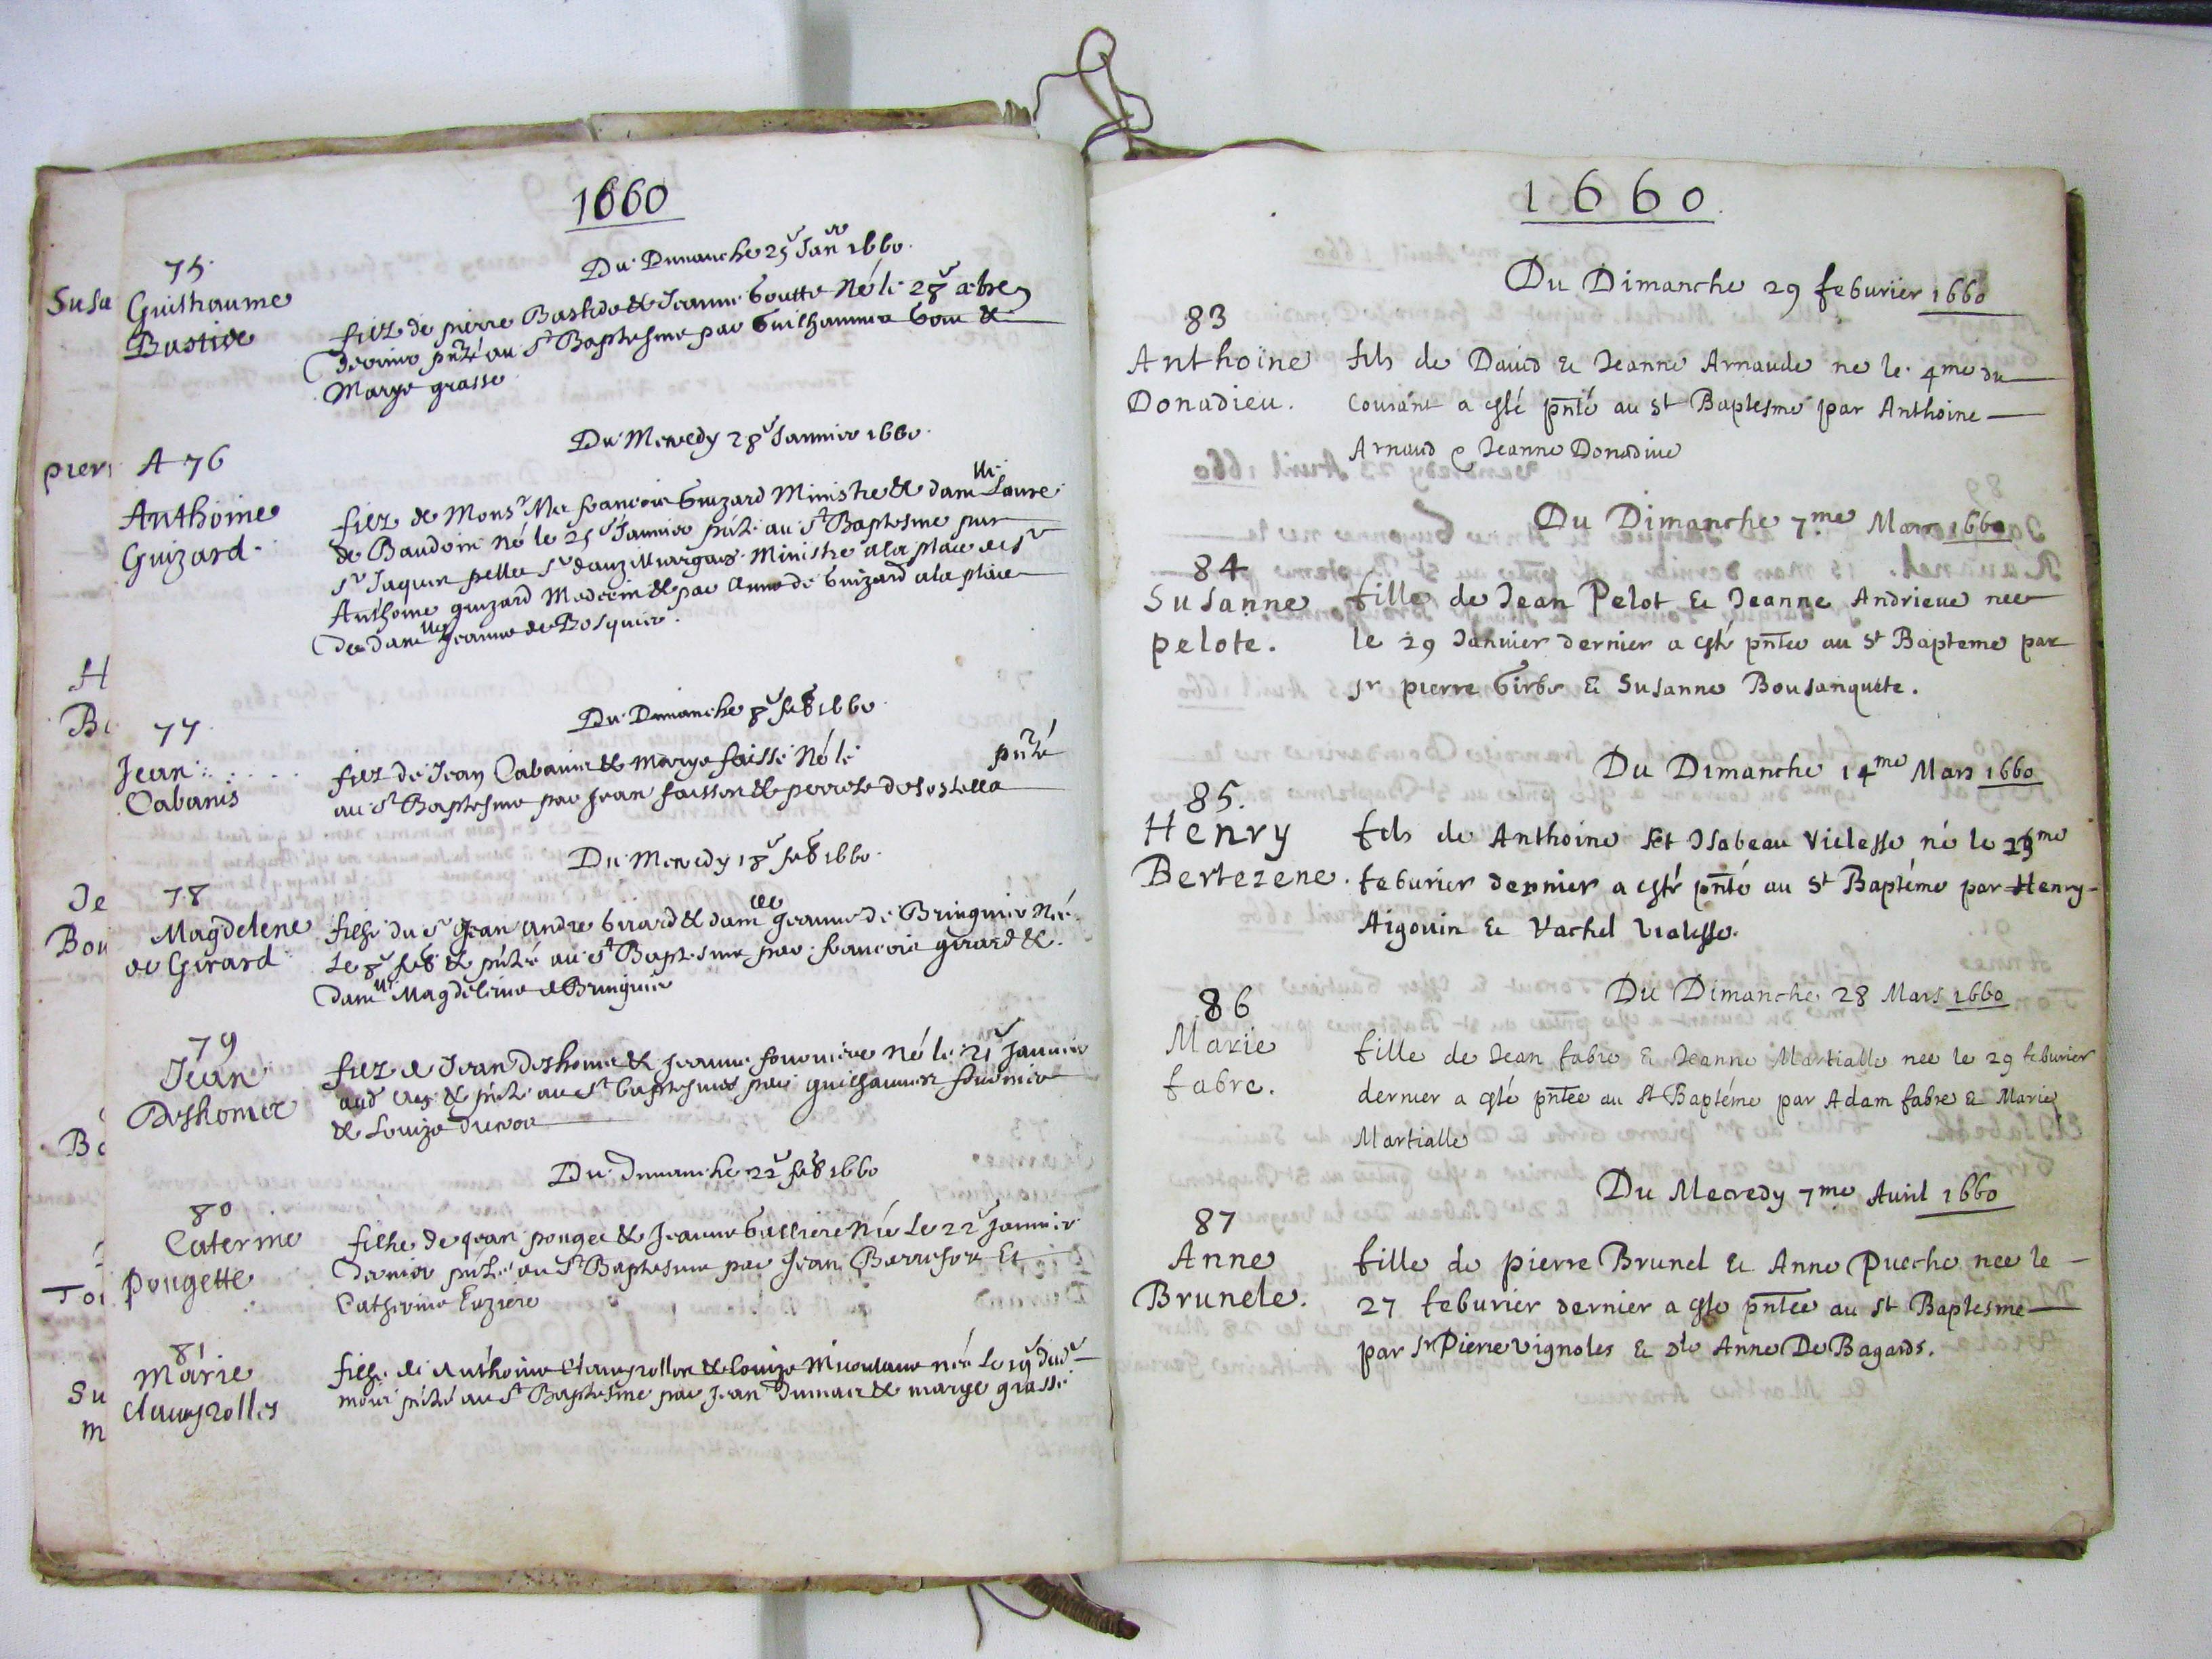 1660
Du Dimanche 25e Janer 1660.
75
Guilhaume
Bastide
filz de pierre Bastide & Jeanne Goutte Né le 28e xbre
dernier pnté au St Baptesme par Guilhaume &
Marye grasse
Du Mecredy 28e Jannier 1660.
A 76
Anthoine
Guizard.
filz de Monsr Me francois Guizard Ministre & damlle Loure
de Baudoin Né le 25e Jannier pnté au St Baptesme par
Sr Jaques pellet Sr dauzilliargues Ministre a la place de Sr
Anthoine guizard Medecin & par Anne de Guizard a la place
de damlle Jeanne de Bosquier.
Du Dimanche 8e feb 1660
77
Jean
Cabanis
filz de Jean Cabanis & Marye faisse Né le pnté
au St Baptesme par Jean faisson &
Du Mecredy 18e feb 1660.
78
Magdelene
de Girard
filhe du Sr Jean Andre Girard & damlle Jeanne de Bringuier Née
Le 8e feb & pntée au St Baptesme par francois girard &
damlle Magdeleine de Bringuier
79
Jean
Deshomes
filz de Jean Deshomes & Jeanne fourniere Né le 21e Jannier
aud an & pnté au St baptesme par guilhaume fournier
& Louize
Du dimanche 22e feb 1660
80
Caterine
Pougette
filhe de Jean pouget & Jeanne Galliere Née Le 22e Jannier
dernier pntée au St Baptesme par Jean Et
Catherine Euziere
81
Marie
Clauyrolles
filhe de Anthoine & Louize née Le 19e dud
mois pnté au St Baptesme par Jean & marye grasse
Susa
pier
H
Be
Je
Bou
Tou
Su
m
1660.
Du Dimanche 29 feburier 1660
83
Anthoine
Donadieu.
fils de Dauid & Jeanne Arnaude ne le 4me du
Courant a esté pnté au St Baptesme par Anthoine
Arnaud & Jeanne Donadiue
Du Dimanche 7me Mars 1660
84
Susanne
pelote.
fille de Jean Pelot & Jeanne Andrieue nee
le 29 Januier dernier a esté pntée au St Bapteme par
Sr pierre Girbe & Susanne Bousanquete.
Du Dimanche 14me Mars 1660
85.
Henry
Bertezene.
fils de Anthoine Et Isabeau Vielesse né le me
feburier dernier a esté pnté au St Baptéme par Henry
Aigouin & Vachel Vialesse.
Du Dimanche 28 Mars 1660
86
Marie
fabre.
fille de Jean fabre & Jeanne Martialle nee le 29 feburier
dernier a esté pntée au St Baptéme par Adam fabre & Marie
Martialle
Du Mecredy 7me Auril 1660
87
Anne
Brunele.
fille de pierre Brunel & Anne Pueche nee le
27 feburier dernier a esté pntée au St Baptesme
par Sr Pierre vignoles & dlle Anne De Bagards.